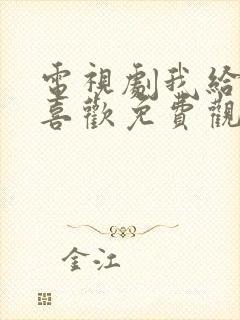 電視劇我給
喜歡免費觀
金江